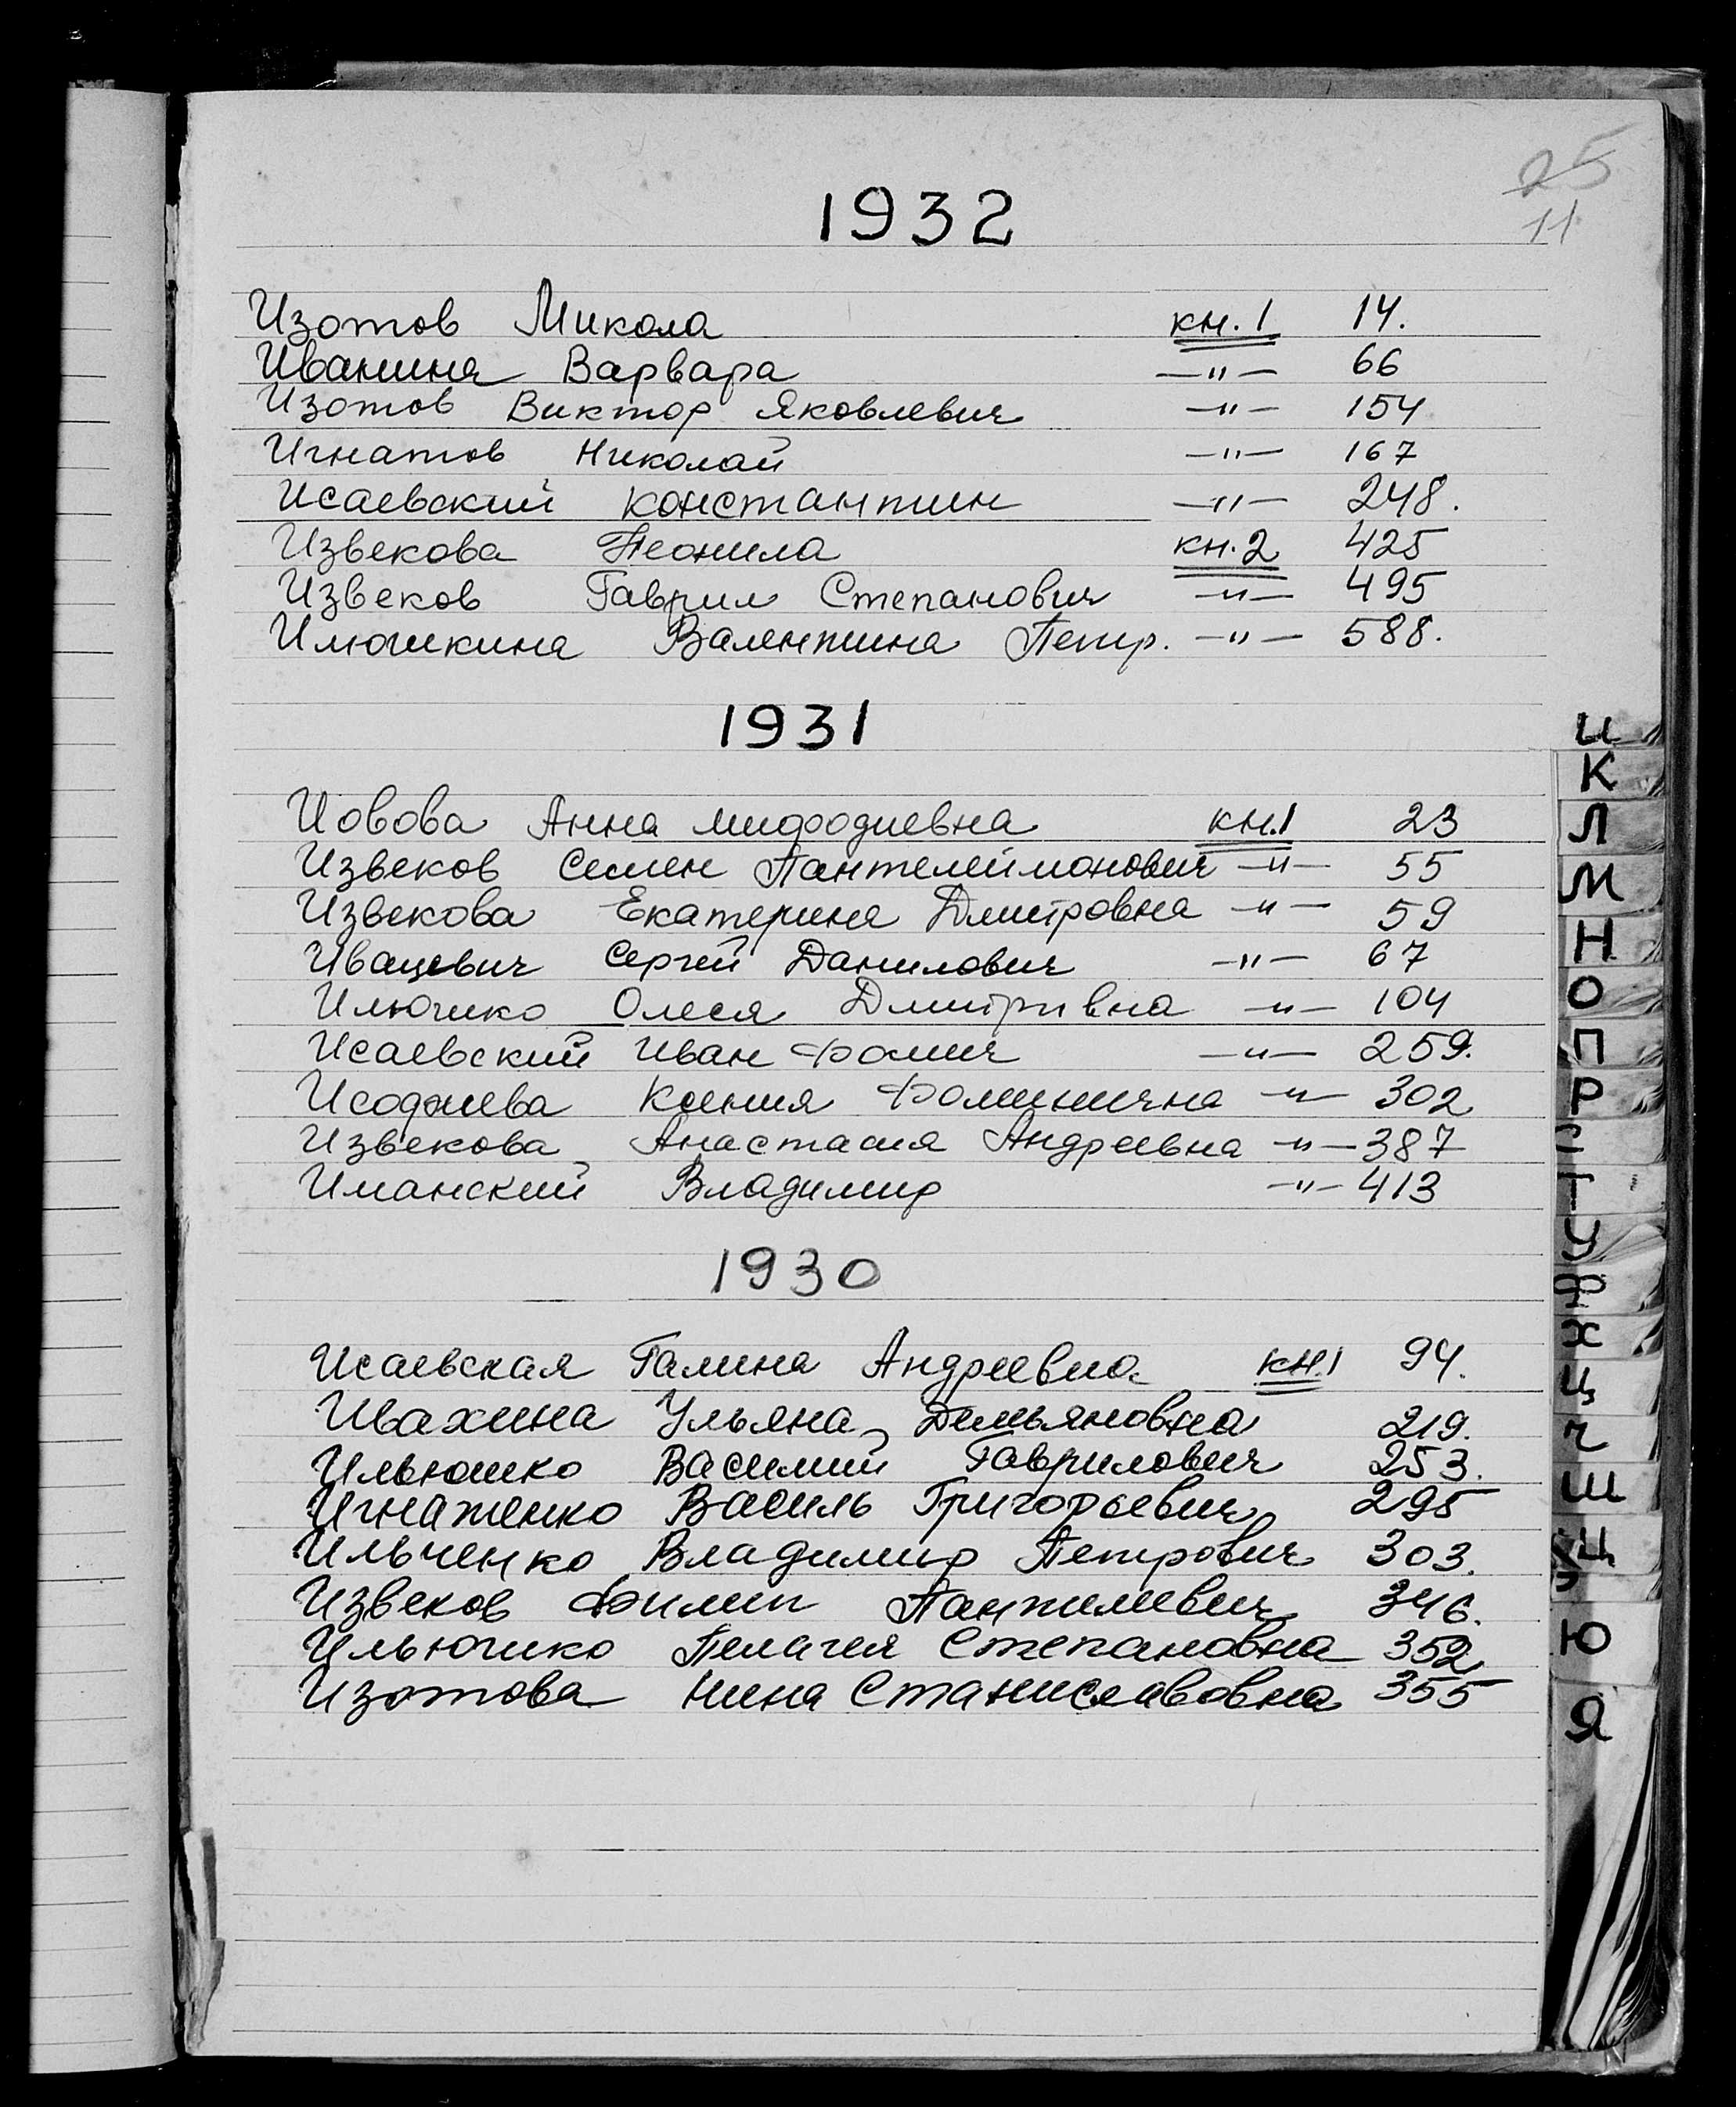 25
11
1932
Изотов Микола кн. 1 14.
Иванина Варвара —"— 66
Изотов Виктор Яковлевич —"— 154
Игнатов Николай —"— 167
Исаевский Константин —"— 248.
Извекова Неонила кн. 2 425
Извеков Гаврил Степанович —"— 495
Илюшкина Валентина Петр. —"— 588.
1931
Иовова Анна Мифодиевна кн. 1 23
Извеков Семен Пантелеймонович —"— 55
Извекова Екатерина Дмитровна —"— 59
Ивацевич Сергей Данилович —"— 67
Илючико Олеся Дмитривна —"— 104
Исаевский Иван Фомич —"— 259.
Ксения Фоминична —"— 302
Извекова Анастасия Андреевна —"— 387
Иманский Владимир —"— 413
1930
Исаевская Галина Андреевна кн. 1 94.
Ивахина Ульяна Демьяновна 219.
Ильюшко Василий Гаврилович 253.
Игнатенко Василь Григорьевич 295
Ильченко Владимир Петрович 303.
Извеков Филип Пантилевич 346.
Ильючико Пелагея Степановна 352
Изотова Нина Станиславовна 355
И
К
Л
М
Н
О
П
Р
С
Т
У
Ф
Х
Ц
Ч
Ш
Щ
Э
Ю
Я